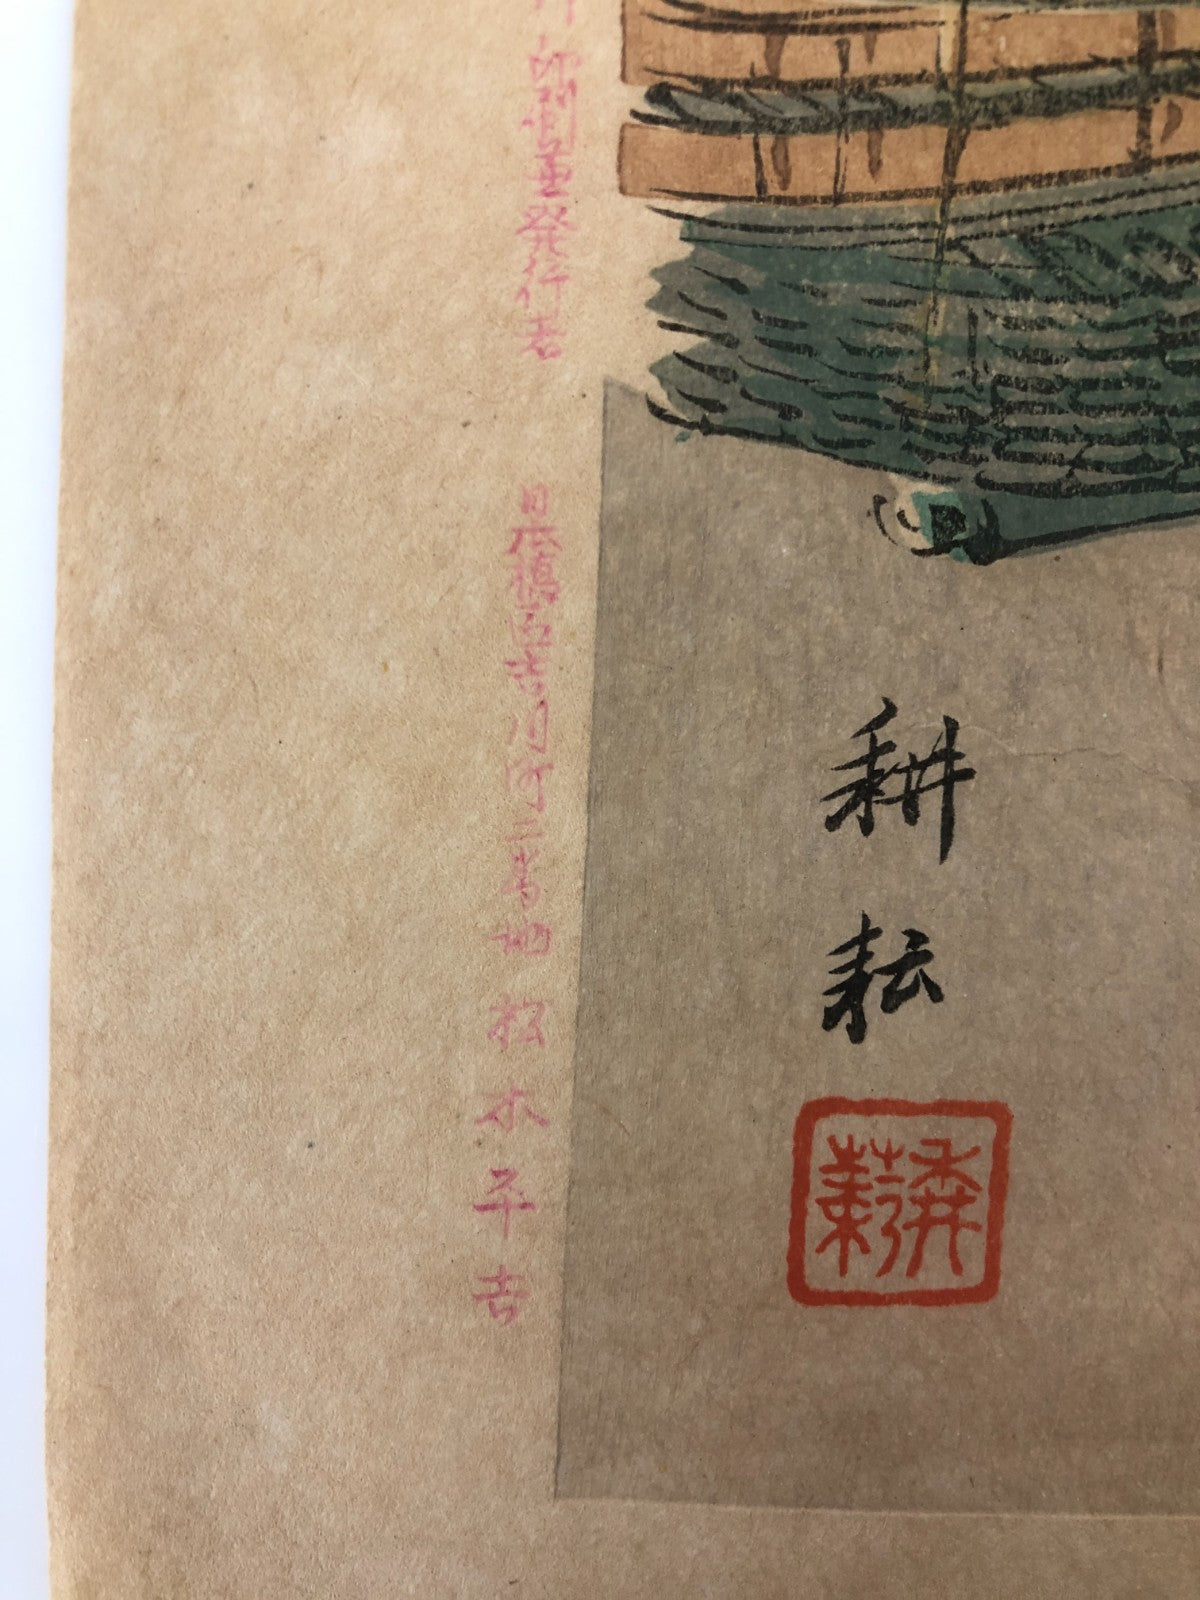 耕耘
印刷兼発行者
日本橋区吉川町二番地 松木平吉